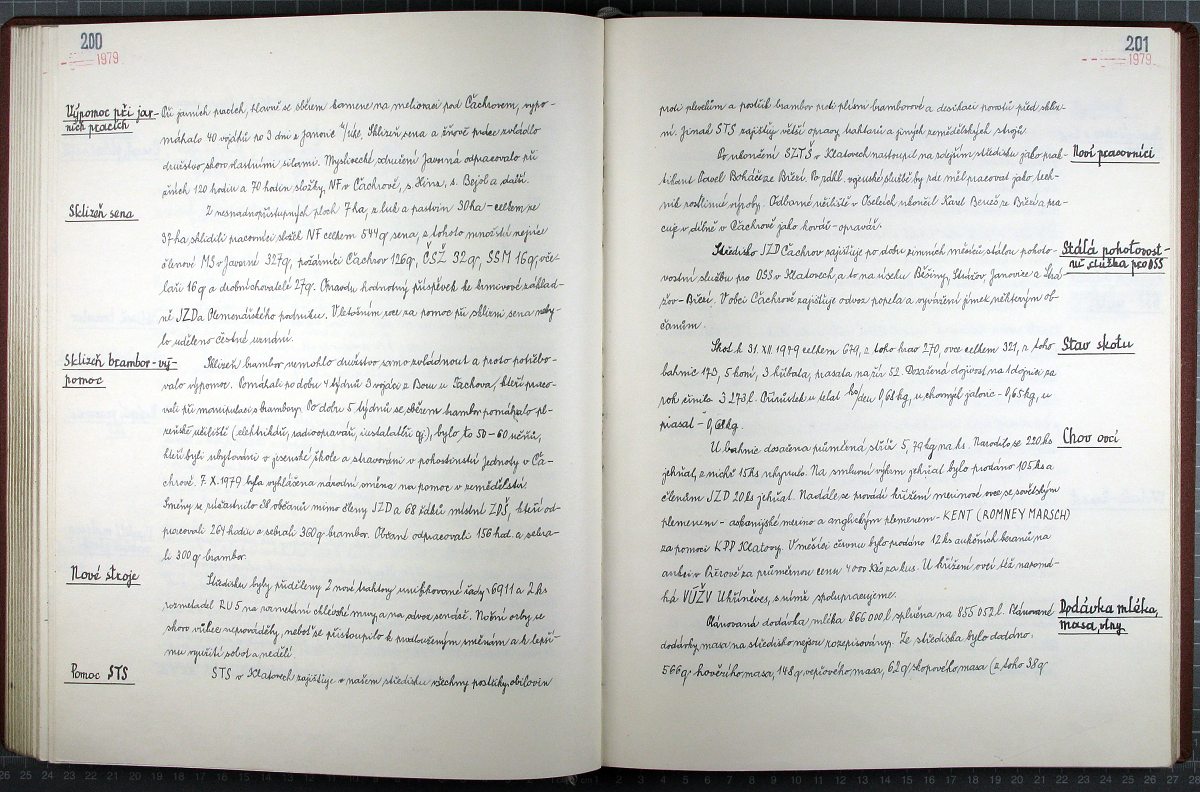 200
1979
Výpomoc při jar-
ních pracích
Při jarních pracích, hlavně se sběrem kamene na melioraci pod Čachrovem, vypo-
máhalo 40 vojáků po 3 dni z Janovic n/Úhl. Sklizeň sena a žňové práce zvládlo
družstvo skoro vlastními silami. Myslivecké sdružení Javorná odpracovalo při
žních 120 hodin a 70 hodin složky NF v Čachrově, s. Hina, s. Bejol a další.
Sklizeň sena
Z nesnadnopřístupných ploch 7 ha, z luk a pastvin 30 ha – celkem ze
37 ha sklidili pracovníci složek NF celkem 544 q sena, z tohoto množství nejvíce
členové MS v Javorné 327 q, požárníci Čachrov 126 q, ČSŽ 32 q, SSM 16 q, vče-
laři 16 q a drobní chovatelé 27 q. Opravdu hodnotný příspěvek ke krmivové základ-
ně JZD a Plemenářského podniku. V letošním roce za pomoc při sklizni sena neby-
lo uděleno čestné uznání.
Sklizeň brambor - vý-
pomoc
Sklizeň brambor nemohlo družstvo samo zvládnout a proto potřebo-
valo výpomoc. Pomáhali po dobu 4 týdnů 3 vojáci z Boru u Tachova, kteří praco-
vali při manipulaci s brambory. Po dobu 5 týdnů se sběrem brambor pomáhalo pl-
zeňské učiliště (elektrikářů, radioopravářů, instalatérů aj.), bylo to 50 – 60 učňů,
kteří byli ubytováni v jesenské škole a stravováni v pohostinství Jednoty v Ča-
chrově. 7. X. 1979 byla vyhlášena národní směna na pomoc v zemědělství.
Směny se zúčastnilo 38 občanů mimo členy JZD a 68 žáků místní ZDŠ, kteří od-
pracovali 264 hodin a sebrali 360 q brambor. Občané odpracovali 156 hod. a sebra-
li 300 q brambor.
Nové stroje
Středisku byly přiděleny 2 nové traktory unifikované řady 6911 a 2 ks
rozmetadel RU 5 na rozmetání chlévské mrvy a na odvoz senáže. Noční orby se
skoro vůbec neprováděly, neboť se přistoupilo k prodlouženým směnám a k lepší-
mu využití sobot a nedělí.
Pomoc STS
STS v Klatovech zajišťuje v našem středisku všechny postřiky obilovin
201
1979
proti plevelům a postřik brambor proti plísni bramborové a desikaci porostů před skliz-
ní. Jinak STS zajišťuje větší opravy traktorů a jiných zemědělských strojů.
Noví pracovníci
Po ukončení SZTŠ v Klatovech nastoupil na zdejším středisku jako prak-
tikant Pavel Boháč ze Březí. Po zákl. vojenské službě by zde měl pracovat jako tech-
nik rostlinné výroby. Odborné učiliště v Oselcích ukončil Karel Beneš ze Březí a pra-
cuje v dílně v Čachrově jako kovář - opravář.
Stálá pohotovost-
ní služba pro OSS
Středisko JZD Čachrov zajišťuje po dobu zimních měsíců stálou pohoto-
vostní službu pro OSS v Klatovech, a to na úseku Běšiny, Strážov, Janovice a Strá-
žov – Březí. V obci Čachrově zajišťuje odvoz popela a vyvážení jímek některým ob-
čanům.
Stav skotu
Skot k 31. XII. 1979 celkem 679, z toho krav 270, ovce celkem 321, z toho
bahnic 173, 5 koní, 3 hříbata, prasata na žír 52. Dosažená dojivost na 1 dojnici za
rok činila 3 273 l. Přírůstek u telat ks/den 0,68 kg, u chovných jalovic – 0,65 kg, u
prasat – 0,68 kg.
Chov ovcí
U bahnic dosažena průměrná stříž 5,79 kg na ks. Narodilo se 220 ks
jehňat, z nichž 15 ks uhynulo. Na smluvní výkrm jehňat bylo prodáno 105 ks a
členům JZD 20 ks jehňat. Nadále se provádí křížení merinové ovce se sovětským
plemenem – askanijské merino a anglickým plemenem – KENT (ROMNEY MARSCH)
za pomoci KPP Klatovy. V měsíci červnu bylo prodáno 12 ks aukčních beranů na
aukci v Přerově za průměrnou cenu 4 000 Kčs za kus. U křížení ovcí též napomá-
há VÚŽV Uhříněves, s nímž spolupracujeme.
Dodávka mléka,
masa, vlny
Plánovaná dodávka mléka 866 000 l, splněna na 855 052 l. Plánované
dodávky masa na středisko nejsou rozepisovány. Ze střediska bylo dodáno:
566 q hovězího masa, 148 q vepřového masa, 62 q skopového masa (z toho 38 q